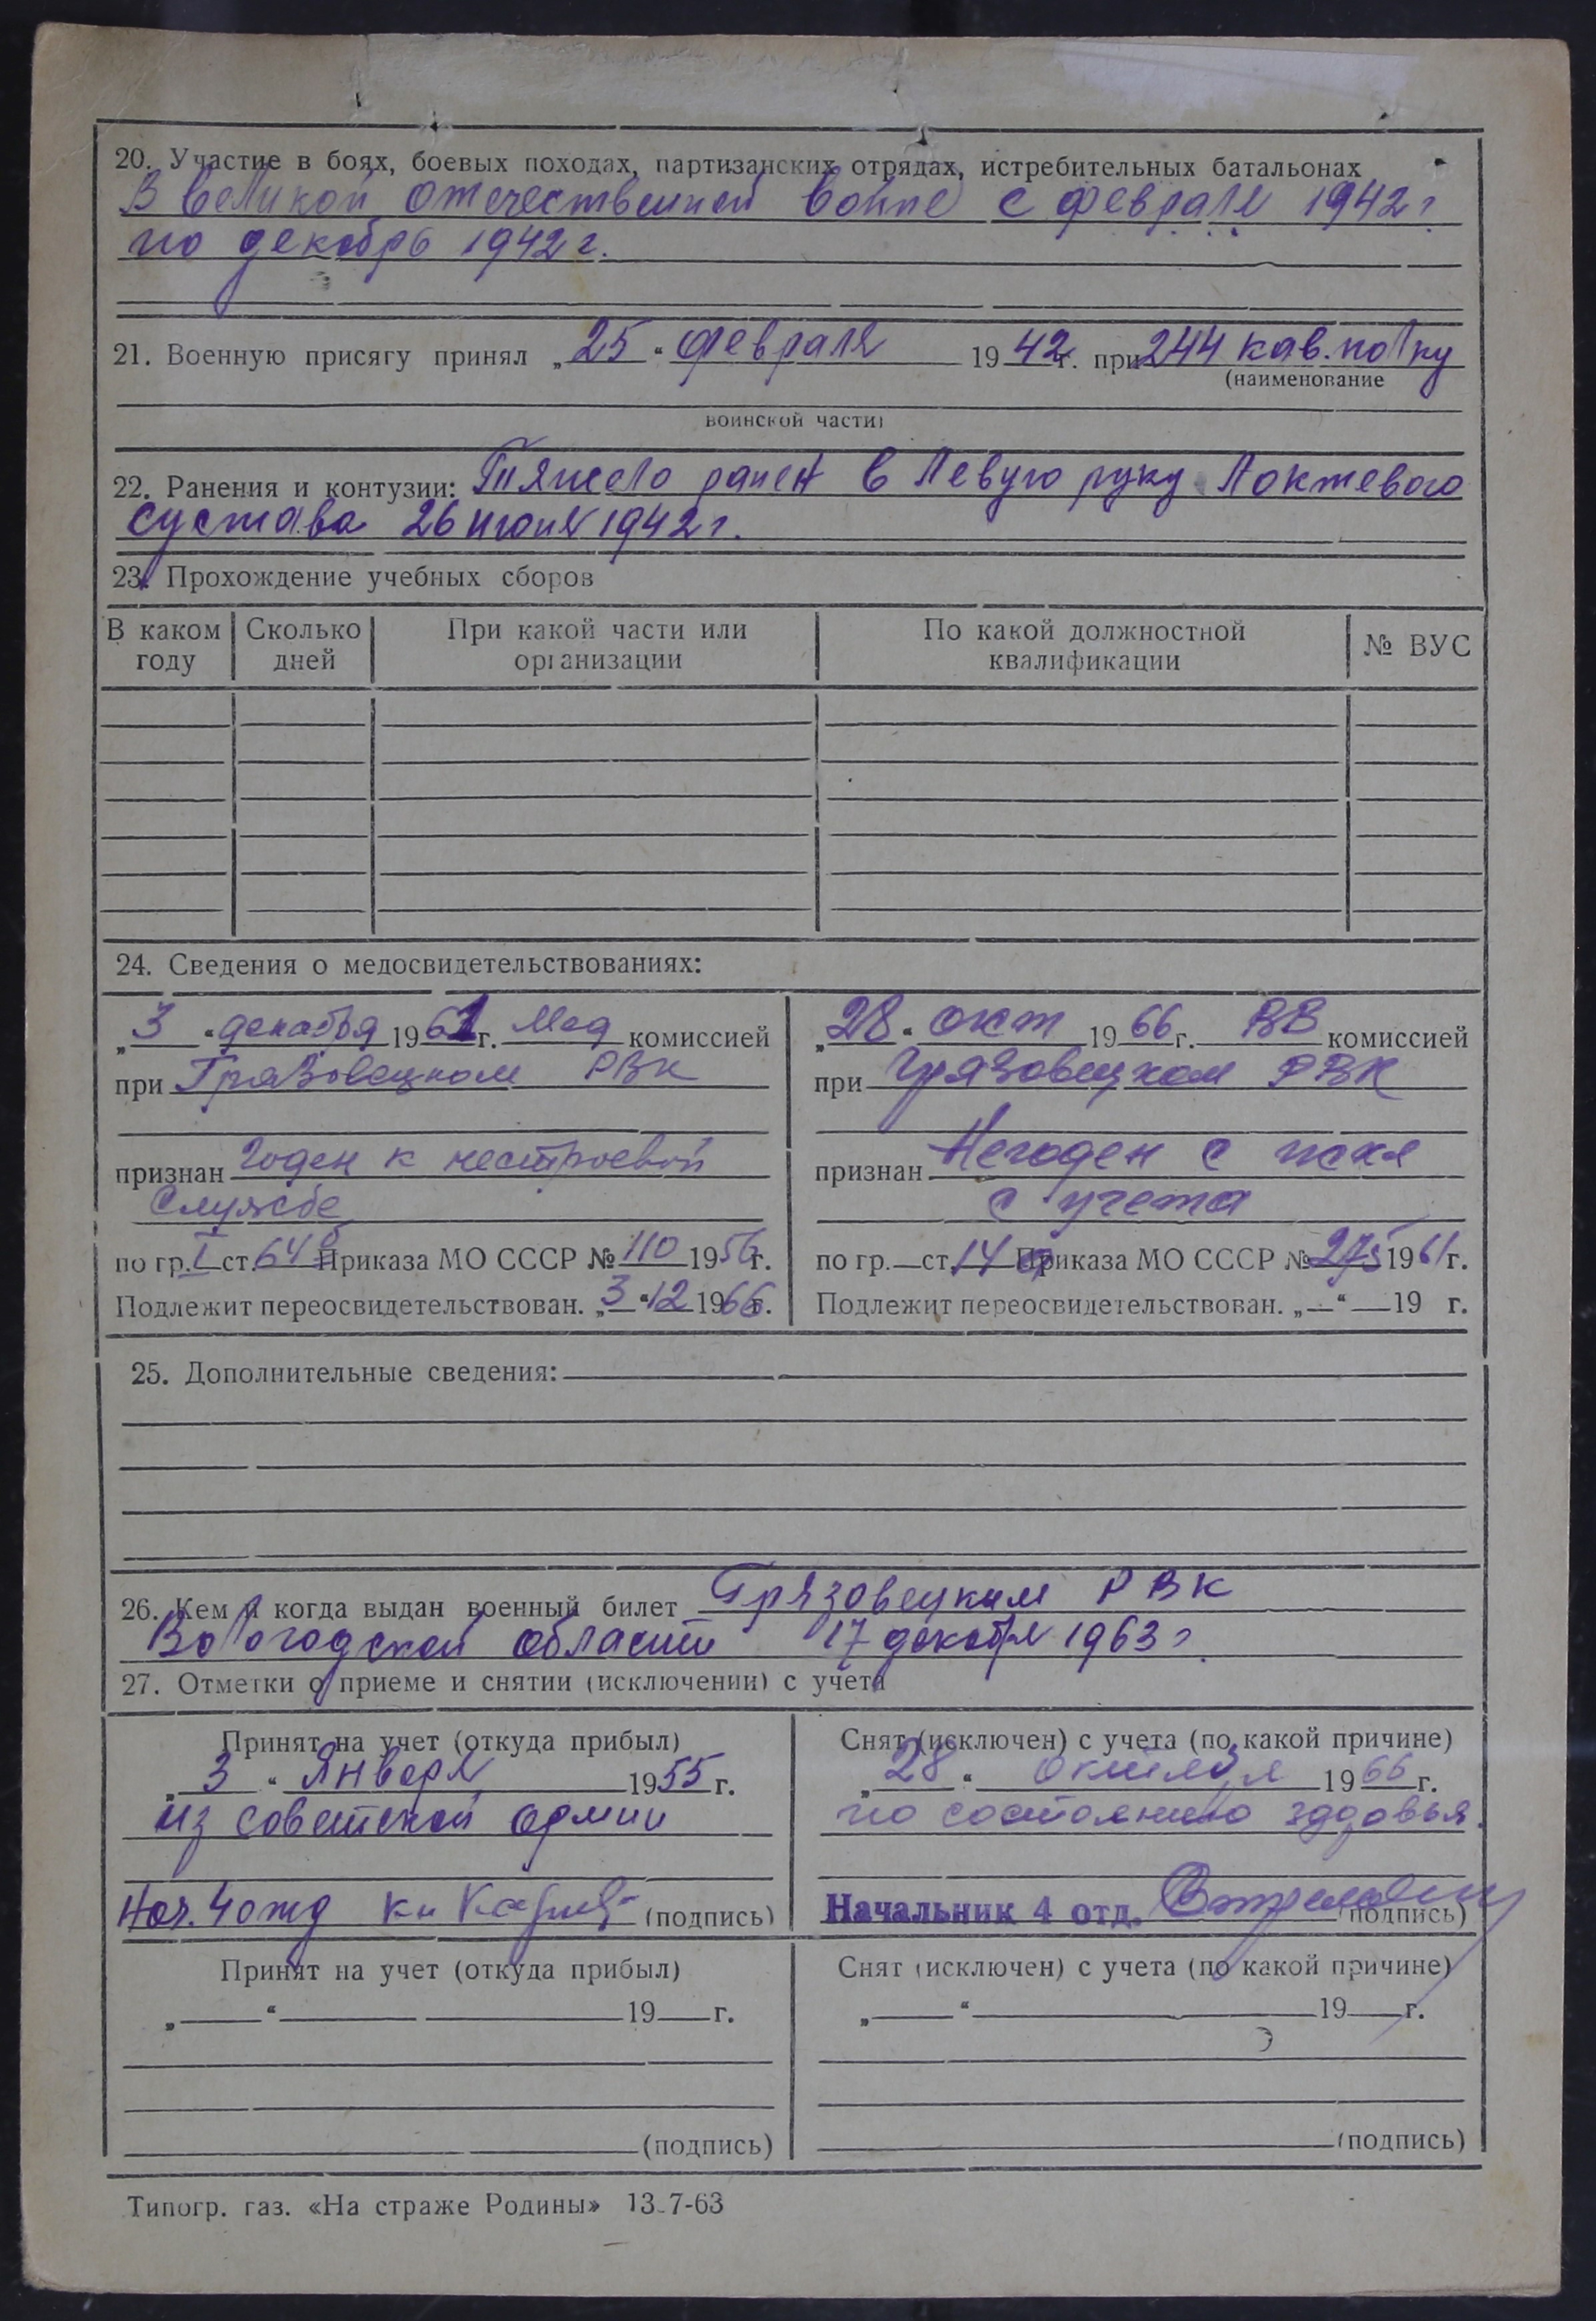 20. Участие в боях, боевых походах, партизанских отрядах, истребительных батальонах
В великой отечественной войне с февраля 1942 г
по декабрь 1942 г.
21. Военную присягу принял „25“ февраля 1942 г. при 244 кав. полку
(наименование
воинской части)
22. Ранения и контузии: Тяжело ранен в левую руку локтевого
сустава 26 июня 1942 г.
23. Прохождение учебных сборов
В каком году | Сколько дней | При какой части или организации | По какой должностной квалификации | № ВУС
24. Сведения о медосвидетельствованиях:
„3“ декабря 1961 г. Мед комиссией
при Грязовецком РВК
признан годен к нестроевой
службе
по гр. I ст. 64 б Приказа МО СССР № 110 1956 г.
Подлежит переосвидетельствован. „3“ 12 1966 г.
„28“ окт 1966 г. ВВ комиссией
при Грязовецком РВК
признан Негоден с искл
с учета
по гр.— ст. 14 Приказа МО СССР № 275 1961 г.
Подлежит переосвидетельствован. „—“ — 19 г.
25. Дополнительные сведения:
26. Кем и когда выдан военный билет Грязовецким РВК
Вологодской области 17 декабря 1963 г.
27. Отметки о приеме и снятии (исключении) с учета
Принят на учет (откуда прибыл)
„3“ Января 1955 г.
из советской армии
Нач. 4 отд (подпись)
Снят (исключен) с учета (по какой причине)
„28“ октября 1966 г.
по состоянию здоровья.
Начальник 4 отд. (подпись)
Принят на учет (откуда прибыл)
„ “ 19 г.
(подпись)
Снят (исключен) с учета (по какой причине)
„ “ 19 г.
(подпись)
Типогр. газ. «На страже Родины» 13-7-63